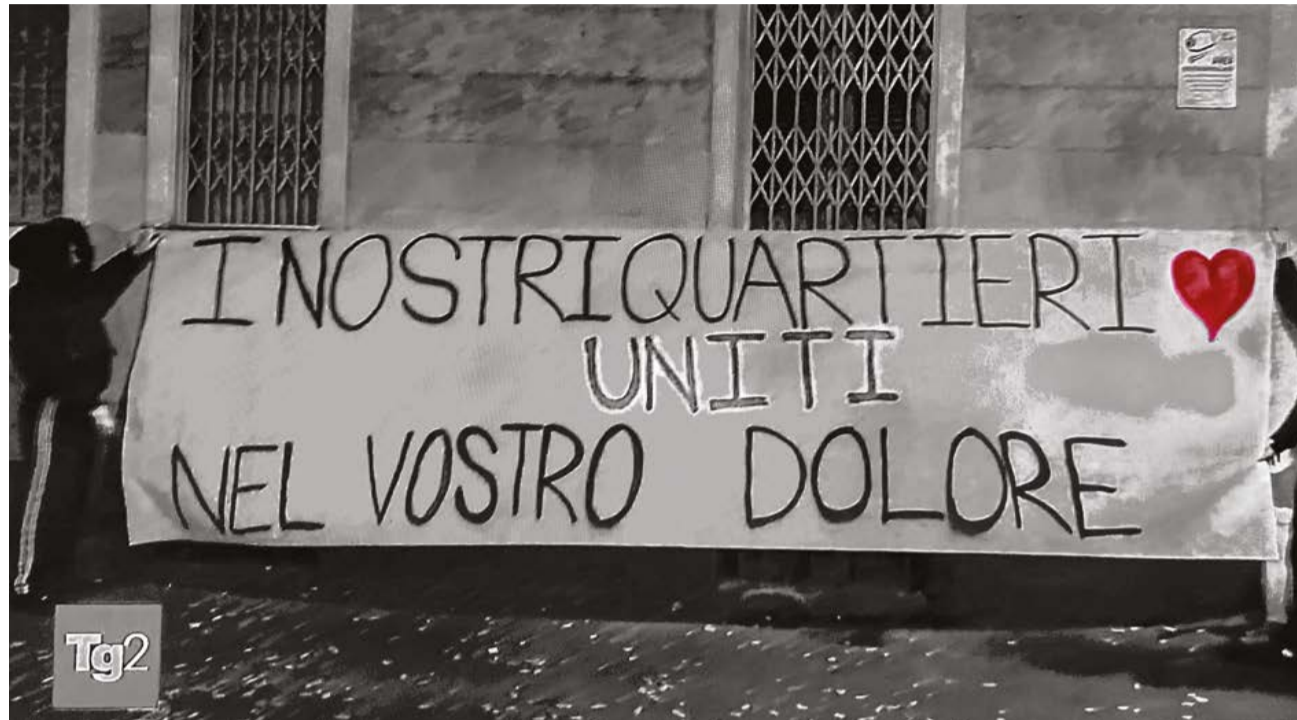 I NOSTRI QUARTIERI
UNITI
NEL VOSTRO DOLORE
Tg2